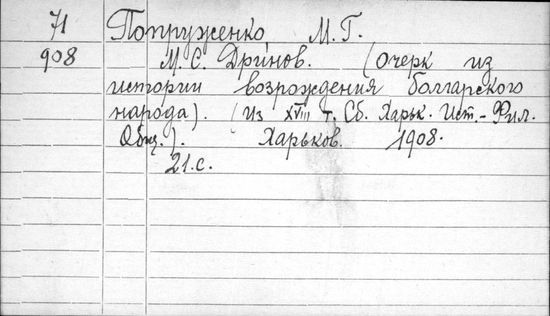 71 Попруженко М. Г.
908 М. С. Дринов. (очерк из
истории возрождения болгарского
народа). (Из XVIII т. Сб. Харьк. Ист.-Фил.
Общ.). Харьков. 1908.
21.с.